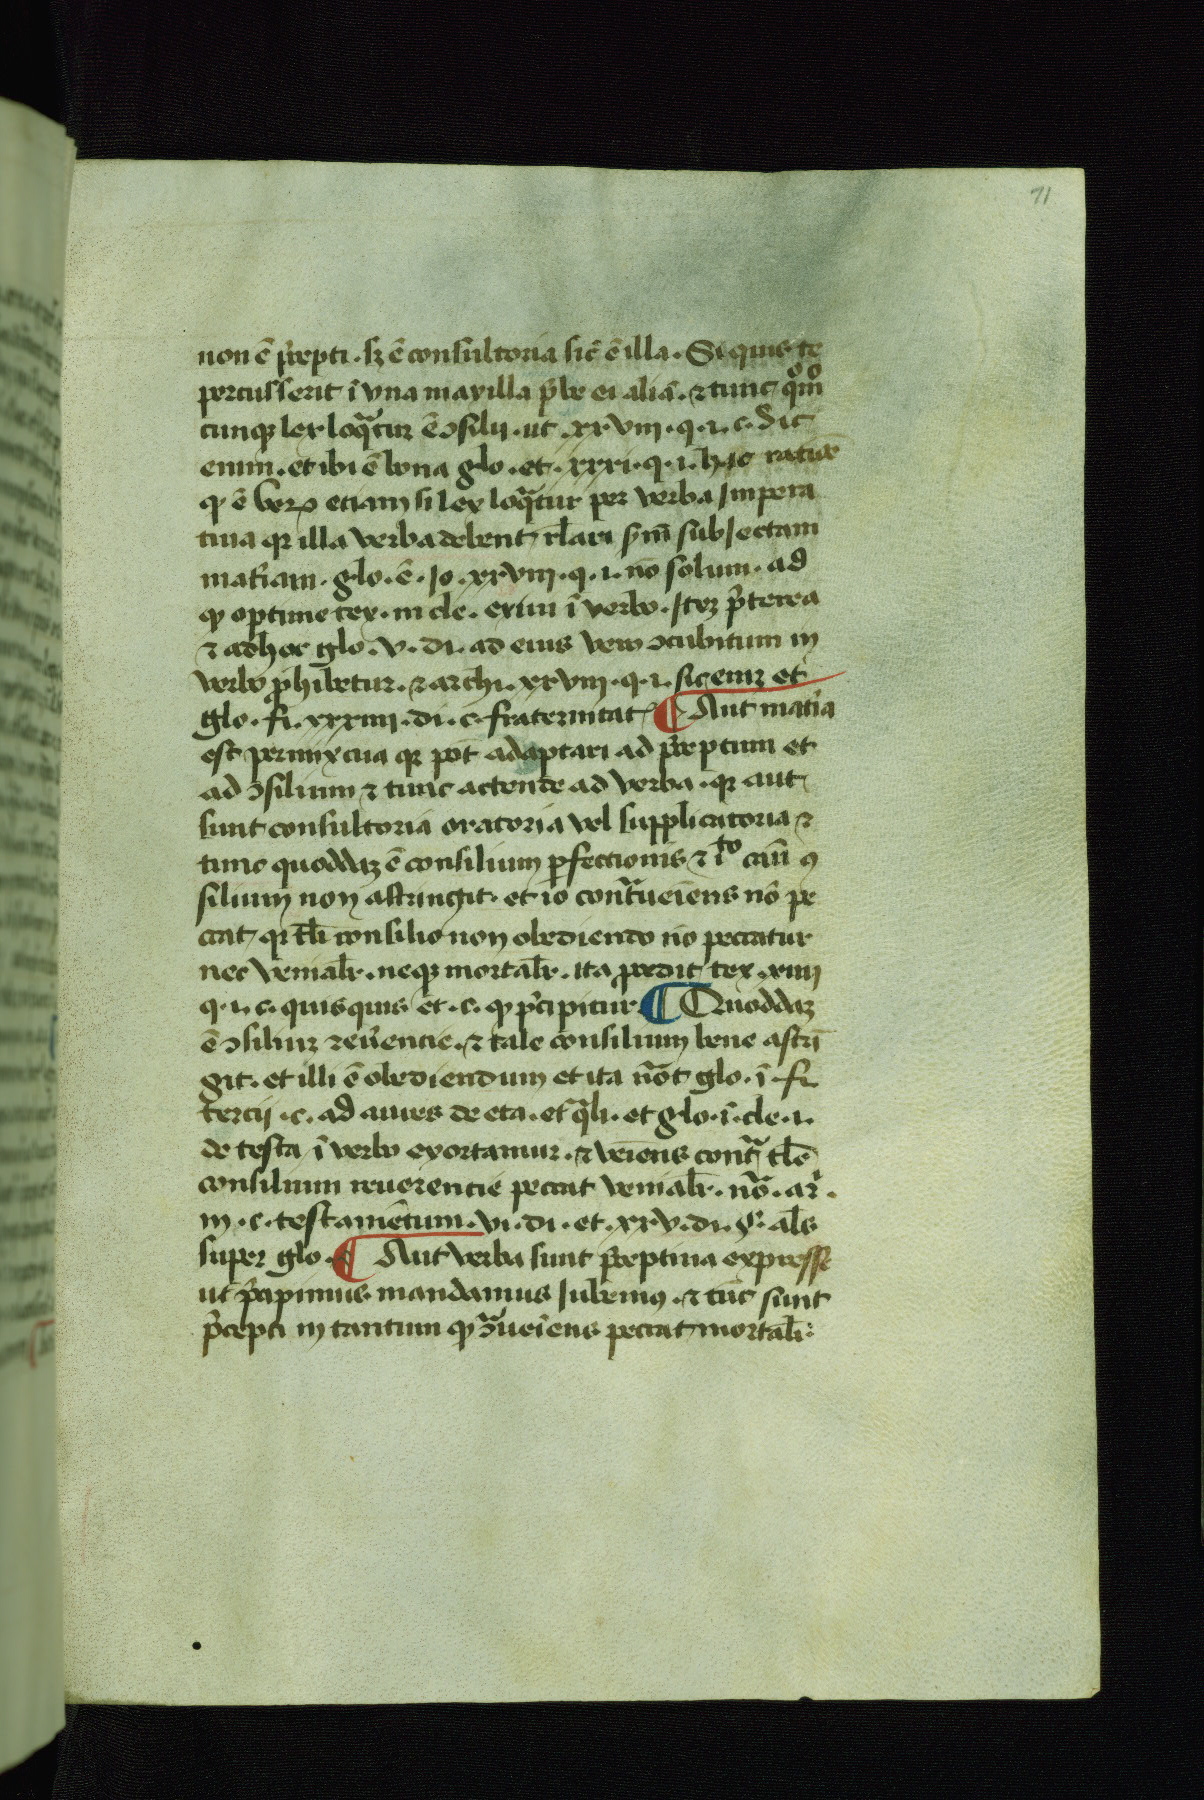 71
non ē p̄cepti · sꝫ ē consultoria sic̄ ē illa · Si quis te
percusserit ī vna maxilla p̄be ei aliā · ⁊ tunc qͦmͦ
cunqꝫ lex loqᷓtur ē ↄsilii · ut · xxviii · q · i · c · Sic
enim · et ibi ē bona glo · et · xxxi · q · i · hac ratiōe
ꝙ ē veꝝ etiam si lex loqᷓtur per verba Impera
tiua qꝛ illa verba debent r̄lari sm̄ subiectam
mat̄iam · glo · ē · Io · xxviii · q · i · nō solum · ad
ꝙ optime tex · in cle · exiui ī verbo · Itēꝫ p̄terea
⁊ ad hoc glo · v · di · ad eius vero ↄcubitum in
verbo ꝓhibetur · ⁊ archi · xxviii · q · i · sic enīꝫ et
glo · fi · xxxiiii · di · c · fraternitatꝭ ¶ Aut mat̄ia
est permixcua qꝛ pot̄ adaptari ad p̄ceptum et
ad ↄsilium ⁊ tunc actende ad verba · qꝛ aut
sunt consultoria oratoria vel supplicatoria ⁊
tunc quoddaꝫ ē consilium ꝑfectionis ⁊ iᷓtͦ cum ꝯ
silium non astringit · et iō contᷓueiēns nō pe
ccat qꝛ tl̄i consilio non obediendo nō peccatur
nec venialr̄ · neqꝫ mortalr̄ · ita ꝓcedit tex · xiiii
q · i · c · quisquis et · c · ꝙ p̄cipitur ¶ Quoddaꝫ
ē ↄsiliuꝫ reūentie · ⁊ tale consilium bene astrī
git · et illi ē obediendum et ita nōt glo · ī · fi
tercii · c · ad aures de eta · et qᷓli · et glo · ī · cle · i ·
de testa ī verbo exortamur · ⁊ veīens contᷓ tl̄e
consilium reuerencie peccat venialr̄ · nōᷓ · ar̄ ·
in · c · testamētum · vi · di · et · xxv · di · §ͥ · al̄s
super glo · ¶ Aut verba sunt p̄ceptiua expresse
ut p̄cipimus mandamus Iubemꝰ · ⁊ tūc sunt
p̄cepti in tantum ꝙ ↄᷓueīens peccat mortalr̄ :